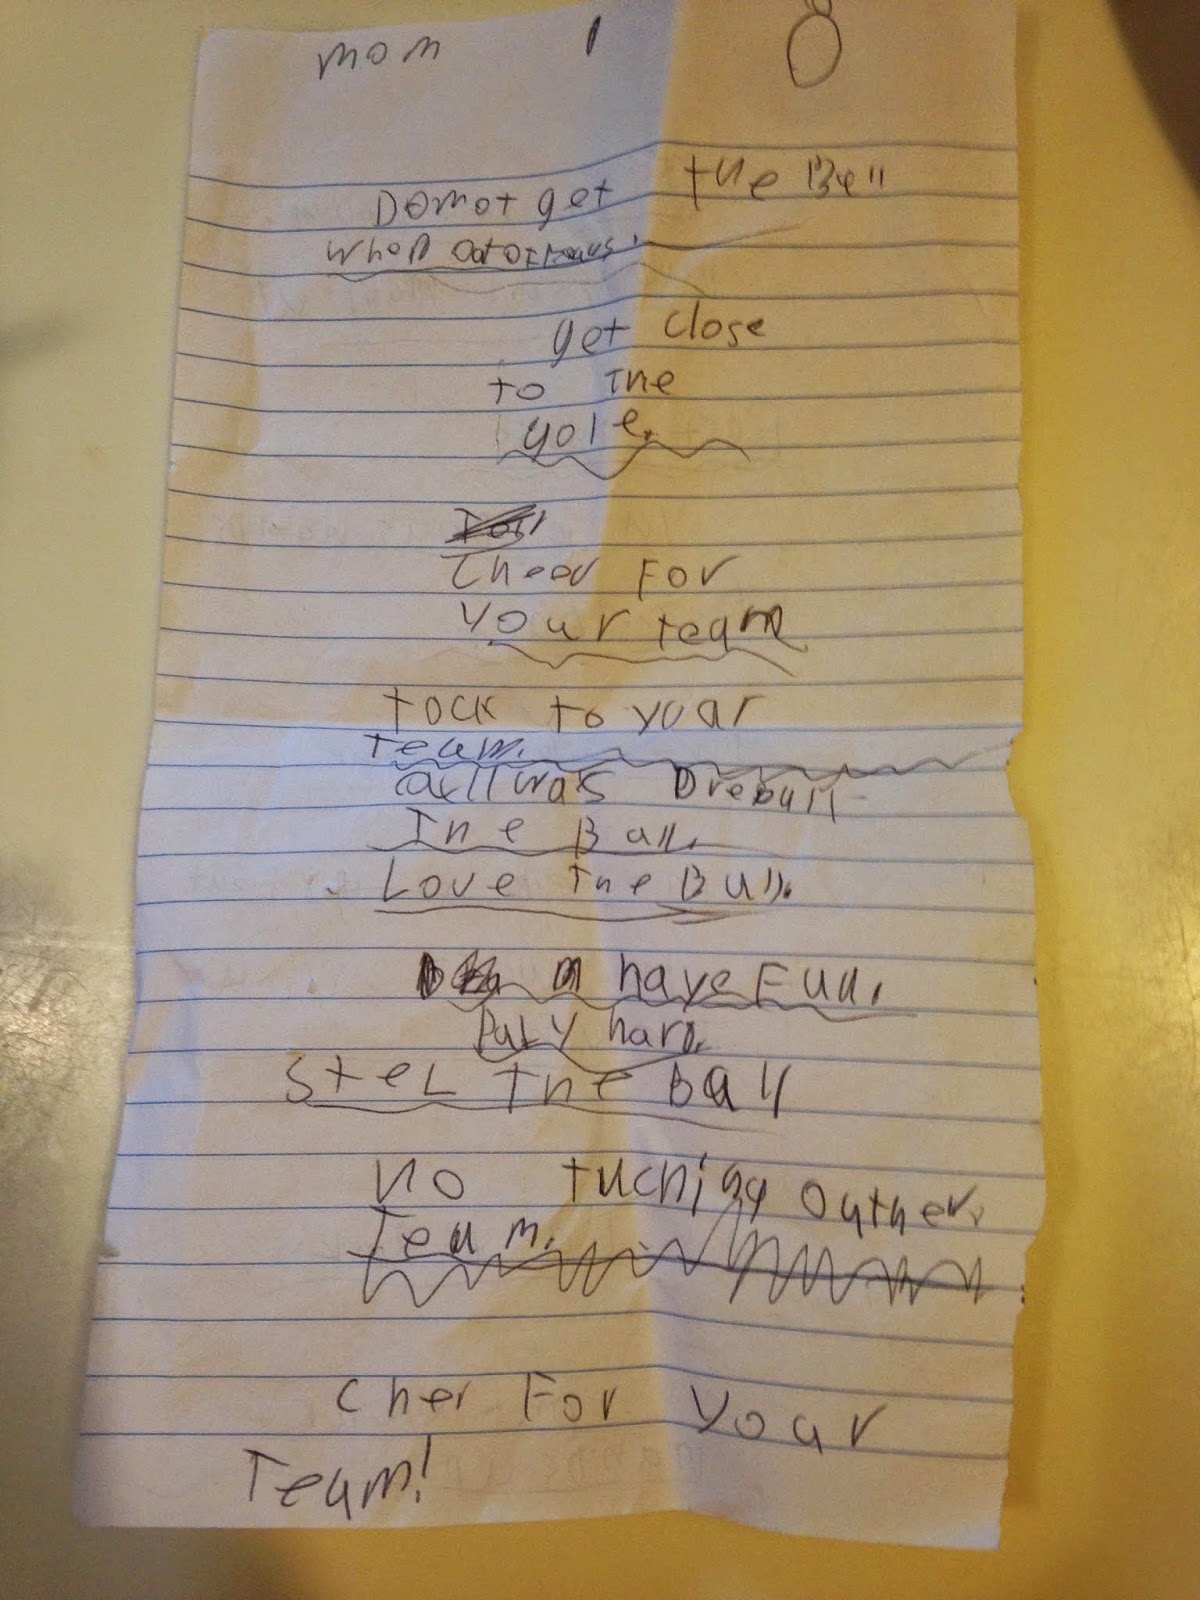 mom 1 8
Do not get the Ball
when out of
get close
to the
gole.
Cheer For
your team
tock to your
team.
allwas Dreball
The Ball.
Love the Ball.
have Fun.
Paly hard.
Stel the Ball
no tuching outher
Team.
Cher For your
Team!